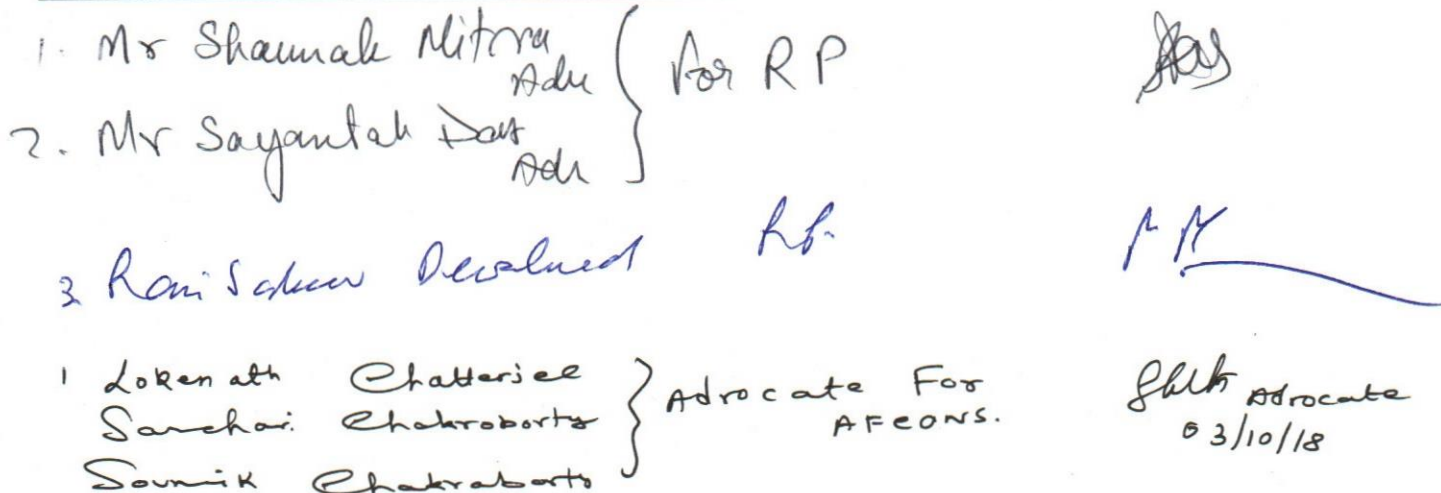 1. Mr Shaunak Mitra
Adv
2. Mr Sayantak Das
Adv
For RP
3. Ravi
RP.
1 Lokenath Chatterjee
Sanchari Chakroborty
Soumik Chakraborty
Advocate For
AFCONS.
Advocate
03/10/18